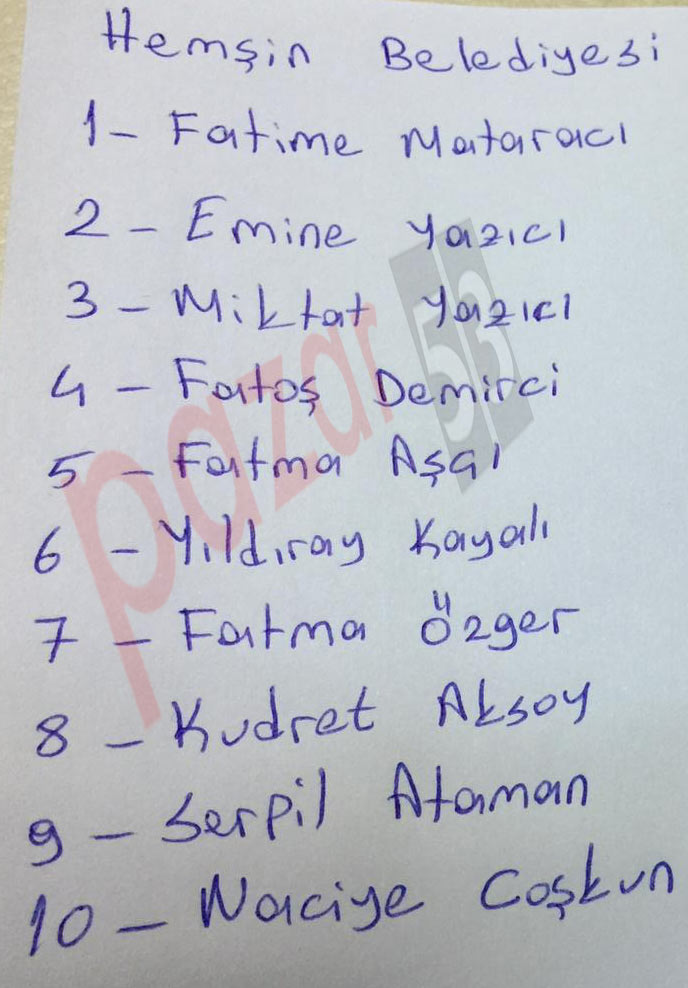 Hemşin Belediyesi
1- Fatime Mataracı
2 - Emine Yazıcı
3 - Miktat Yazıcı
4 - Fatoş Demirci
5 - Fatma Aşçı
6 - Yıldıray Kayalı
7 - Fatma Özger
8 - Kudret Aksoy
9 - Serpil Ataman
10 - Naciye Coşkun
pazar 53